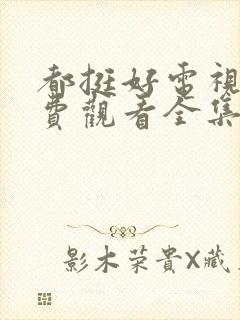 都挺好電視
費觀看全集
影木荣貴X藏